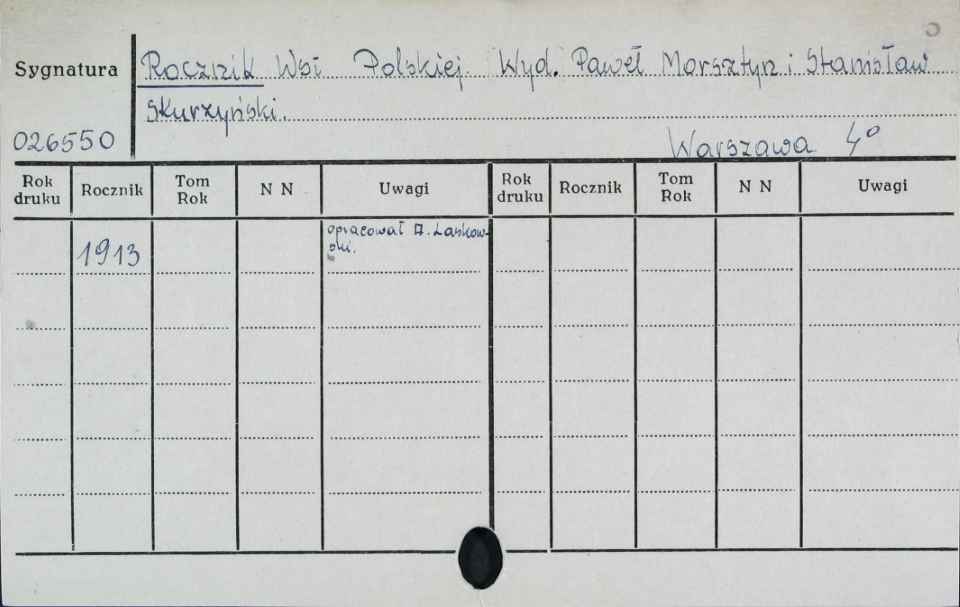 Sygnatura
Rocznik Wsi Polskiej. Wyd. Paweł Morsztyn i Stanisław
Skurzyński.
026550
Warszawa 4°
Rok druku Rocznik Tom Rok N N Uwagi Rok druku Rocznik Tom Rok N N Uwagi
1913 opracował A. Laskow-
ski.